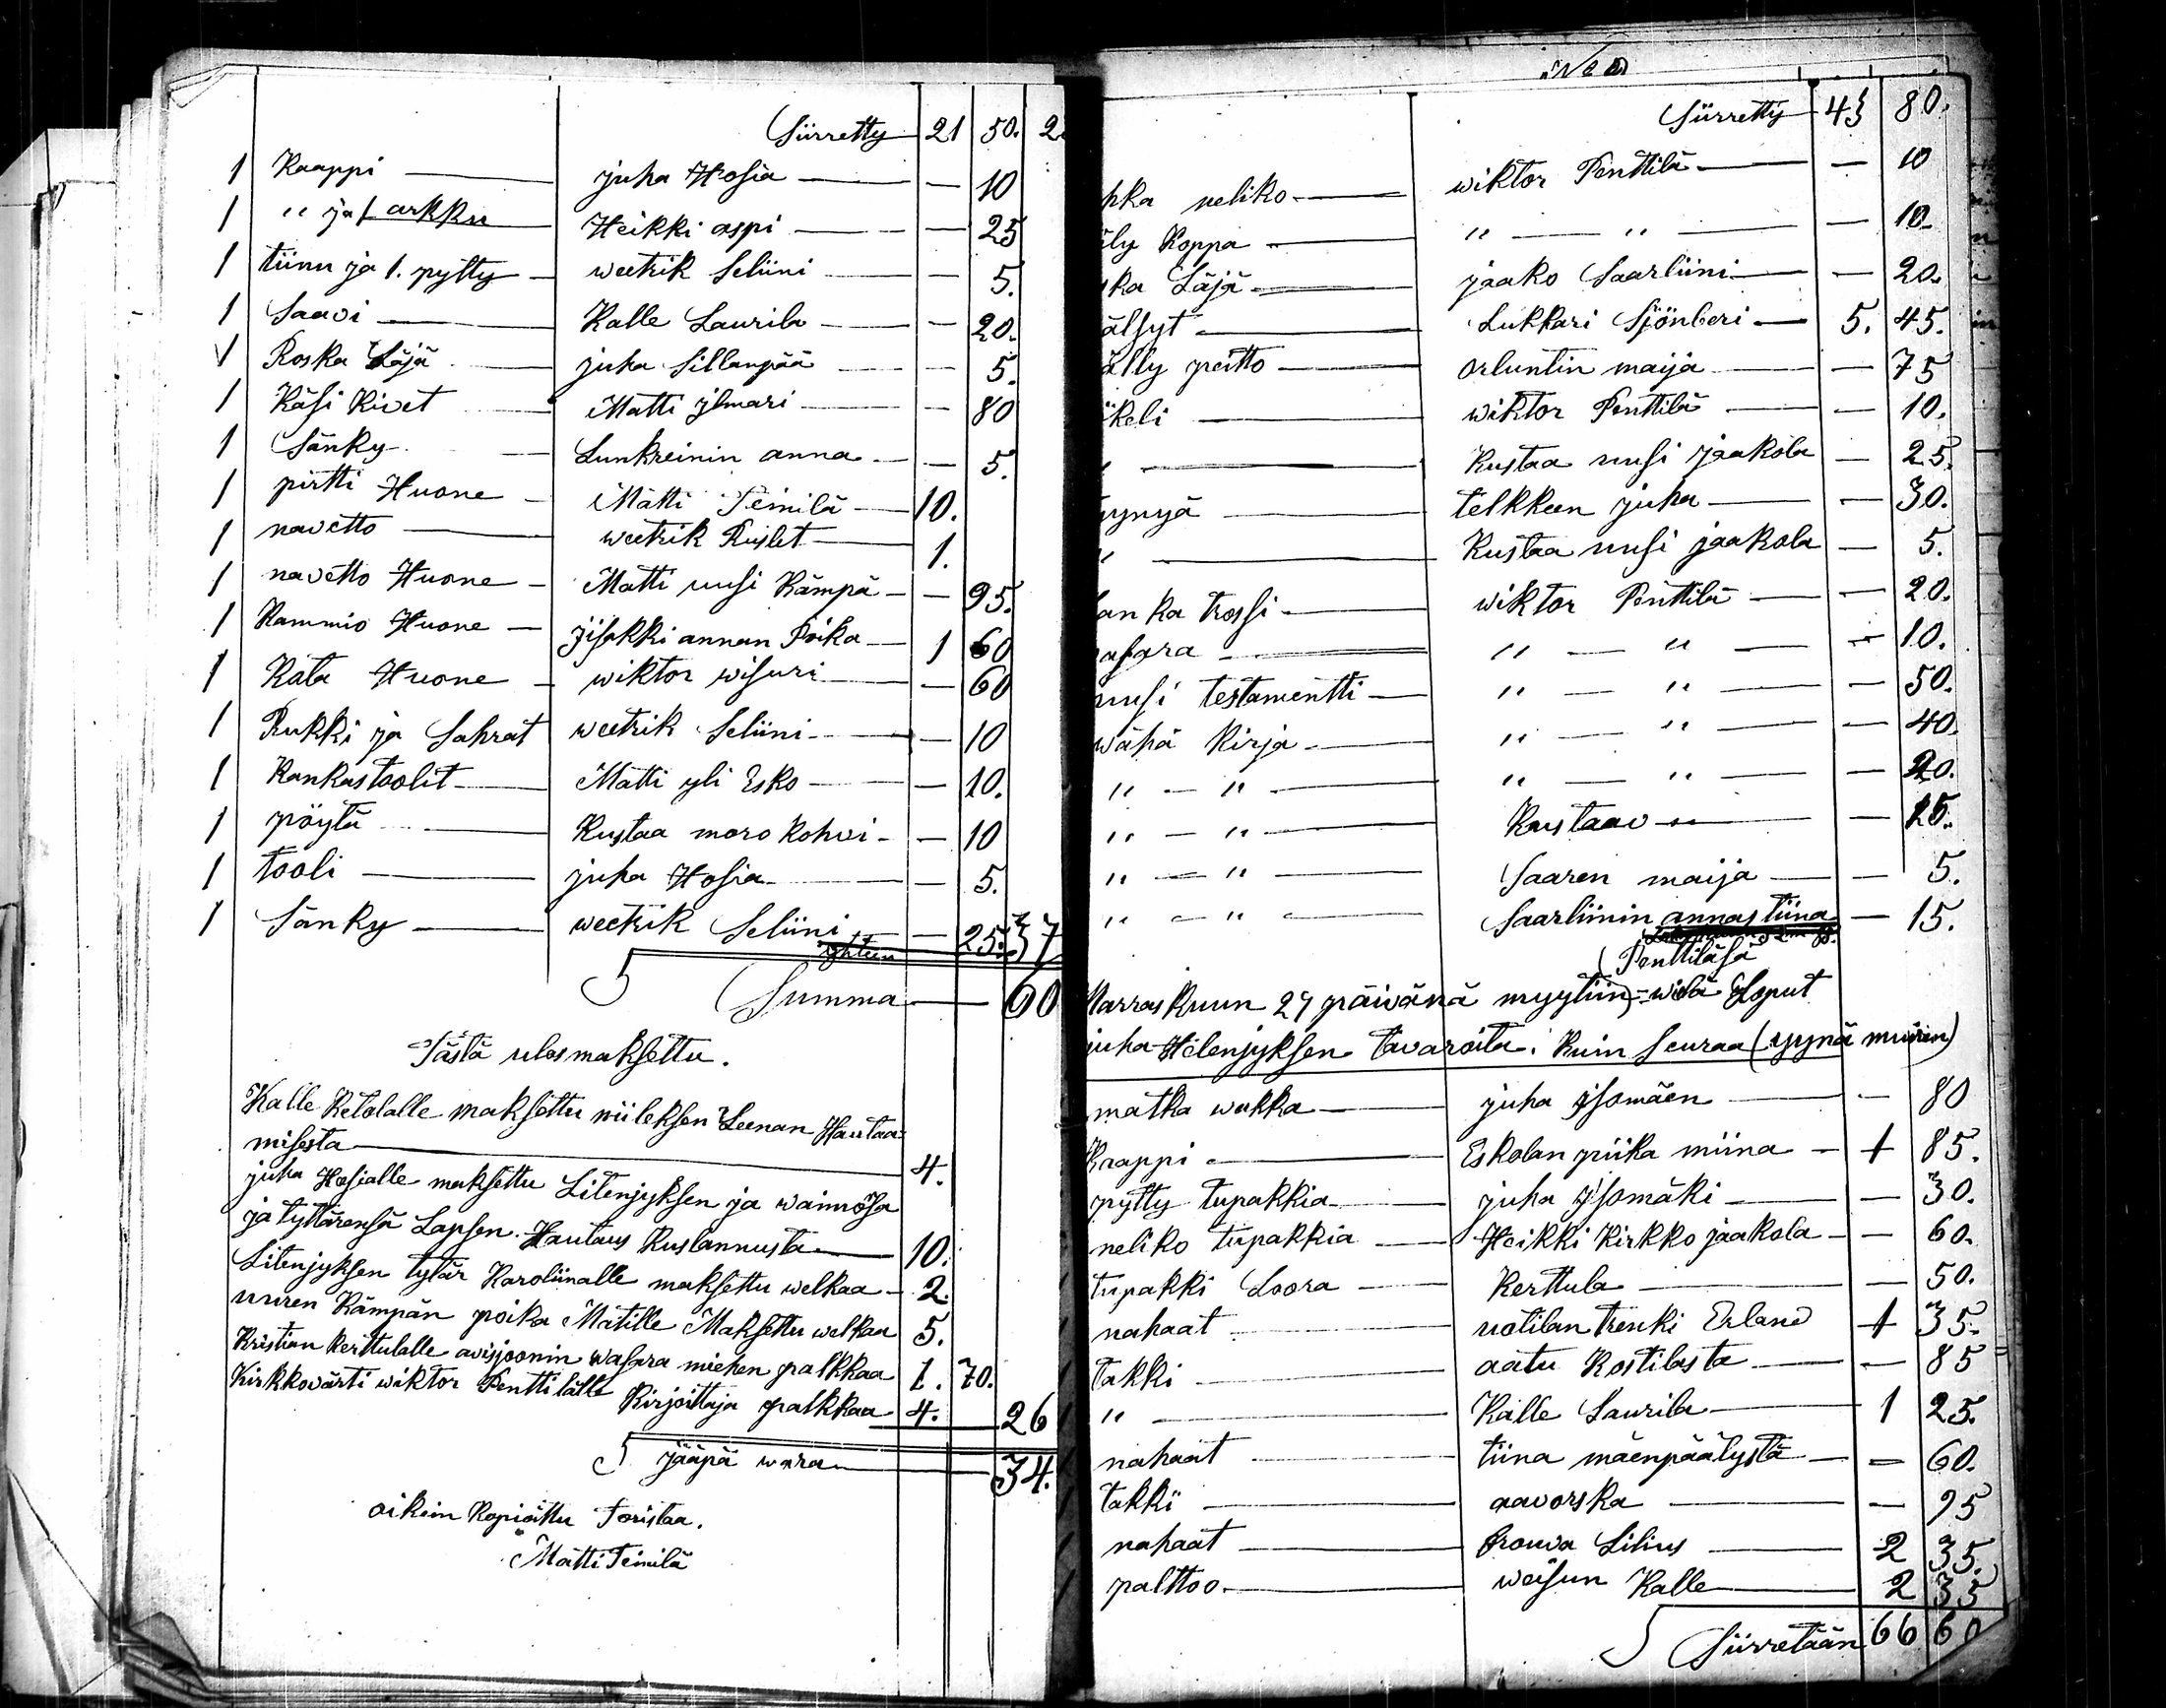 Siirretty 21 50. 2
1 Kaappi juha Hosia — 10
1 " ja 1 arkku Heikki aspi — 25
1 tiinu ja 1. pytty weetrik Seliini — 5.
1 Saavi Kalle Laurila — 20.
1 Roska Läjä juha Sillanpää — 5.
1 Käsi Kivet Matti jlmari — 80
1 Sänky Lunkreinin anna — 5.
1 pirtti Huone Matti Teinilä 10.
1 navetto weetrik Ruslet 1.
1 navetto Huone Matti uusi Kämpä — 95.
1 Kammio Huone jisakki annan Poika 1 60
1 Kota Huone wiktor wisuri — 60
1 Rukki ja Sahrat weetrik Seliini — 10
1 Kankastoolit Matti yli Esko — 10.
1 pöytä Kustaa moro Kohvi — 10
1 tooli juha Hosia — 5.
1 Sänky weetrik Seliini — 25. 37
Summa 60
Tästä ulosmaksettu.
Kalle Ketolalle maksettu niileksen Leenan Hautaa-
misesta 4.
juha Hosialle maksettu Litenjyksen ja waimosa
ja tyttärensä Lapsen Hautaus Kustannusta 10.
Litenjyksen tytär Karoliinalle maksettu welkaa 2.
uuren Kämpän poika Matille Maksettu welkaa 5.
Kristian Kerttulalle avisjoonin wasara miehen palkkaa 1. 70.
Kirkkovärti wiktor Penttilälle Kirjoittaja palkkaa 4. 26
jääpä wara 34.
oikein Kopioittu Toristaa.
Matti Teinilä
No 2
Siirretty 43 80.
hka neliko wiktor Penttilä — 10
ily Koppa " " — 10.
ka Läjä jaako Saarliini — 20.
älsyt Lukkari Sjönberi 5. 45.
älly peitto orluntin maija — 75
keli wiktor Penttilä — 10.
" Kustaa uusi jaakola — 25.
yynyä telkkeen juha — 30.
" Kustaa uusi jaakola — 5.
lanka trossi wiktor Penttilä — 20.
asara " " — 10.
uusi testamentti " " — 50.
wähä Kirja " " — 40.
" — " " " — 20.
" — " Kustaav — 15.
" — " Saaren maija — 5.
" — " Saarliinin annastiina — 15.
(Penttiläsä
MarrasKuun 27 päivänä myytiin) wiälä Loput
juha Helenjyksen tavaroita. Kuin Seuraa (
matka wakka juha jsomäen — 80
Kaappi Eskolan piika miina 1 85.
pytty tupakkia juha jsomäki — 30.
neliko tupakkia Heikki Kirkko jaakola — 60.
tupakki Loora Kerttula — 50.
nahaat uotilan trenki Erland 1 35.
takki aatu Kostilasta — 85
" Kalle Laurila 1 25.
nahaat tiina mäenpäälystä — 60.
takki aavorska — 95
nahaat frouva Lilius 2 35.
palttoo Kalle 2 35
Siirretään 66 60